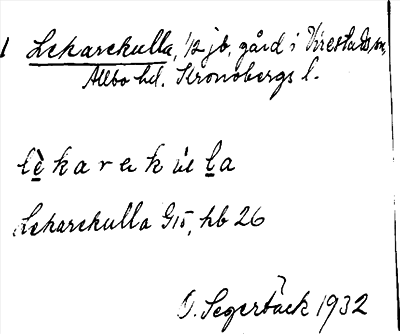 1 Lekarekulla, 1/2 jb, gård i Virestads sn,
Allbo hd. Kronobergs l.
lè̱karekúḻla
Lekarekulla G15, hb 26
O. Segerbäck 1932